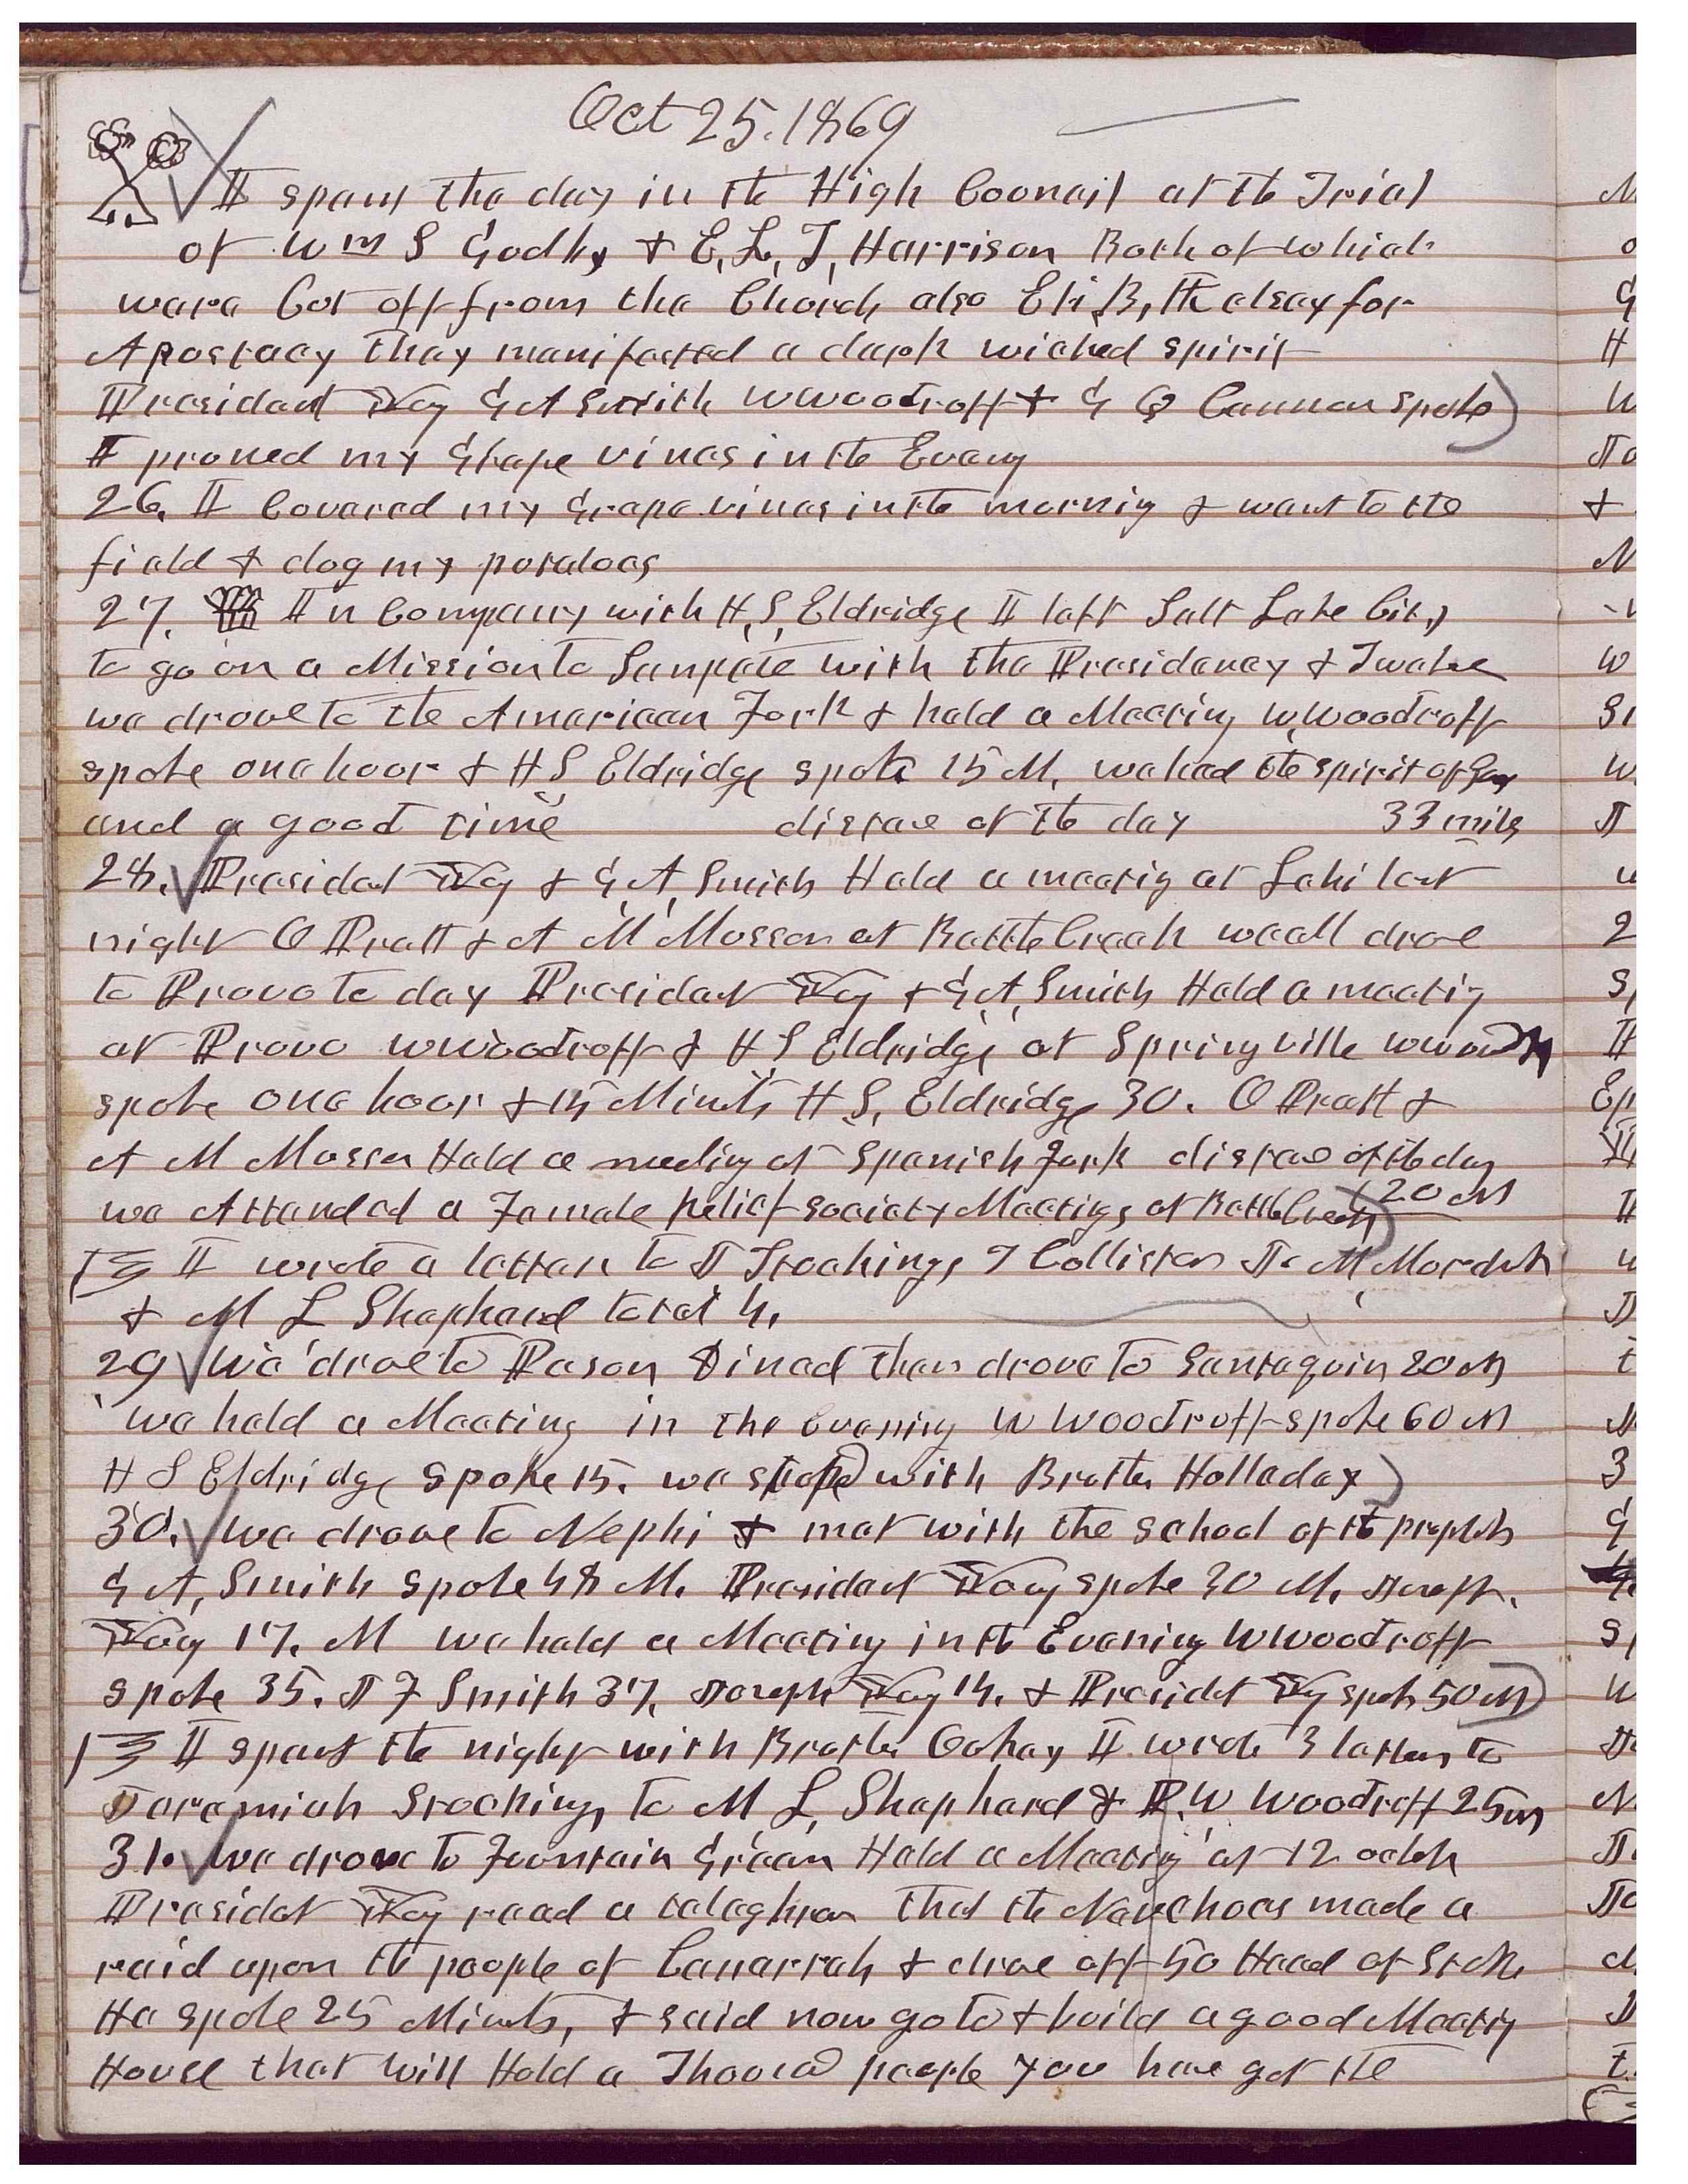 Oct 25. 1869
I spent the day in the High Council at the Trial
of Wm S Godby & E, L, T, Harrison Both of which
were Cut off from the Church also Eli B, Kelsey for
Apostacy They manifested a dark wicked spirit
President Young G A Smith W Woodruff & G Q Cannon spoke
I pruned my Grape vines in the Eveng
26. I Covered my Grape vines in the morning & went to the
field & dug my potatoes
27. In Company with H, S, Eldridge I left Salt Lake City
to go on a Mission to Sanpete with the Presidency & Twelve
we drove to the American Fork & held a Meeting W, Woodruff
spoke one hour & H S Eldridge spoke 15 M, we had the spirit of God
and a good time distance of the day 33 mils
28. Presidet Young & G, A, Smith Held a meetig at Lehi last
night O Pratt & A M Musser at Battle Creek we all drove
to Provo to day President Young & G, A, Smith Held a meetig
at Provo W Woodruff & H S Eldridge at Springville W Woodruff
spoke one hour & 15 Minuts H S, Eldridge 30. O Pratt &
A M Musser Held a meeting at Spanish Fork distance of the day
we Attended a Female Relief Society Meetings at Battle Creek 20 M
I wrote a letter to J Stockings, T Callister J. M, Murdock
& M L Shephard total 4.
29 We drove to Payson Dined then drove to Santaquin 20 M
we held a Meeting in the Evening W Woodruff spoke 60 M
H S Eldridge spoke 15. we stoped with Brother Holladay
30. We drove to Nephi & met with the school of the prophets
G A, Smith spoke 48 M. President Young spoke 30 M, Joseph.
Young 17. M we held a Meeting in the Evening W Woodruff
spoke 35. J F Smith 37, Joseph Young 14. & Presidet Young spoke 50 M
I spent the night with Brother Gohay I wrote 3 letters to
Jeremiah Stockings, to M L, Shephard & P, W Woodruff 25 m
31. we drove to Fountain Green Held a Meetig at 12 oclok
Presidet Young read a telegham that the Navehoes made a
raid upon the people of Canarrah & drove off 50 Head of Stock
He spoke 25 Minuts, & said now go to & build a good Meetig
House that will Hold a Thousand people you have got the